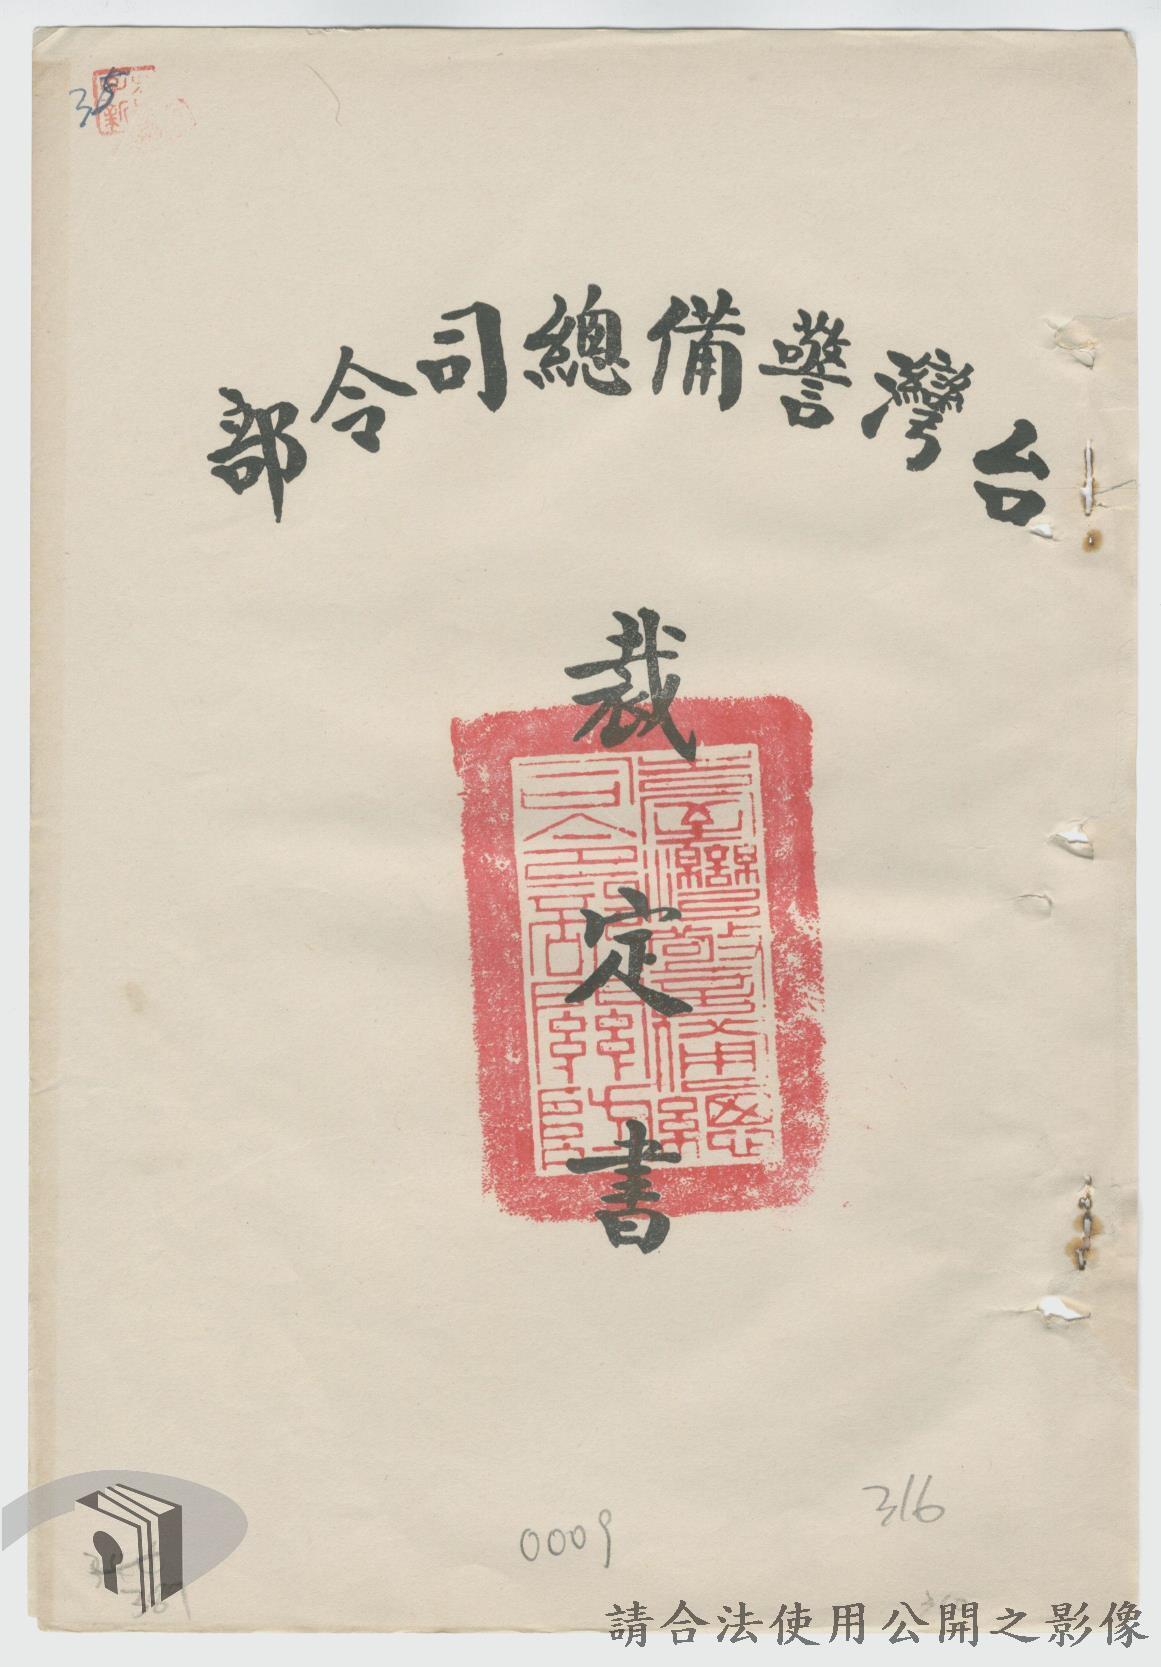 35
台灣警備總司令部
裁定書
臺灣警備總
司令部軍
0009
316
請合法使用公開之影像